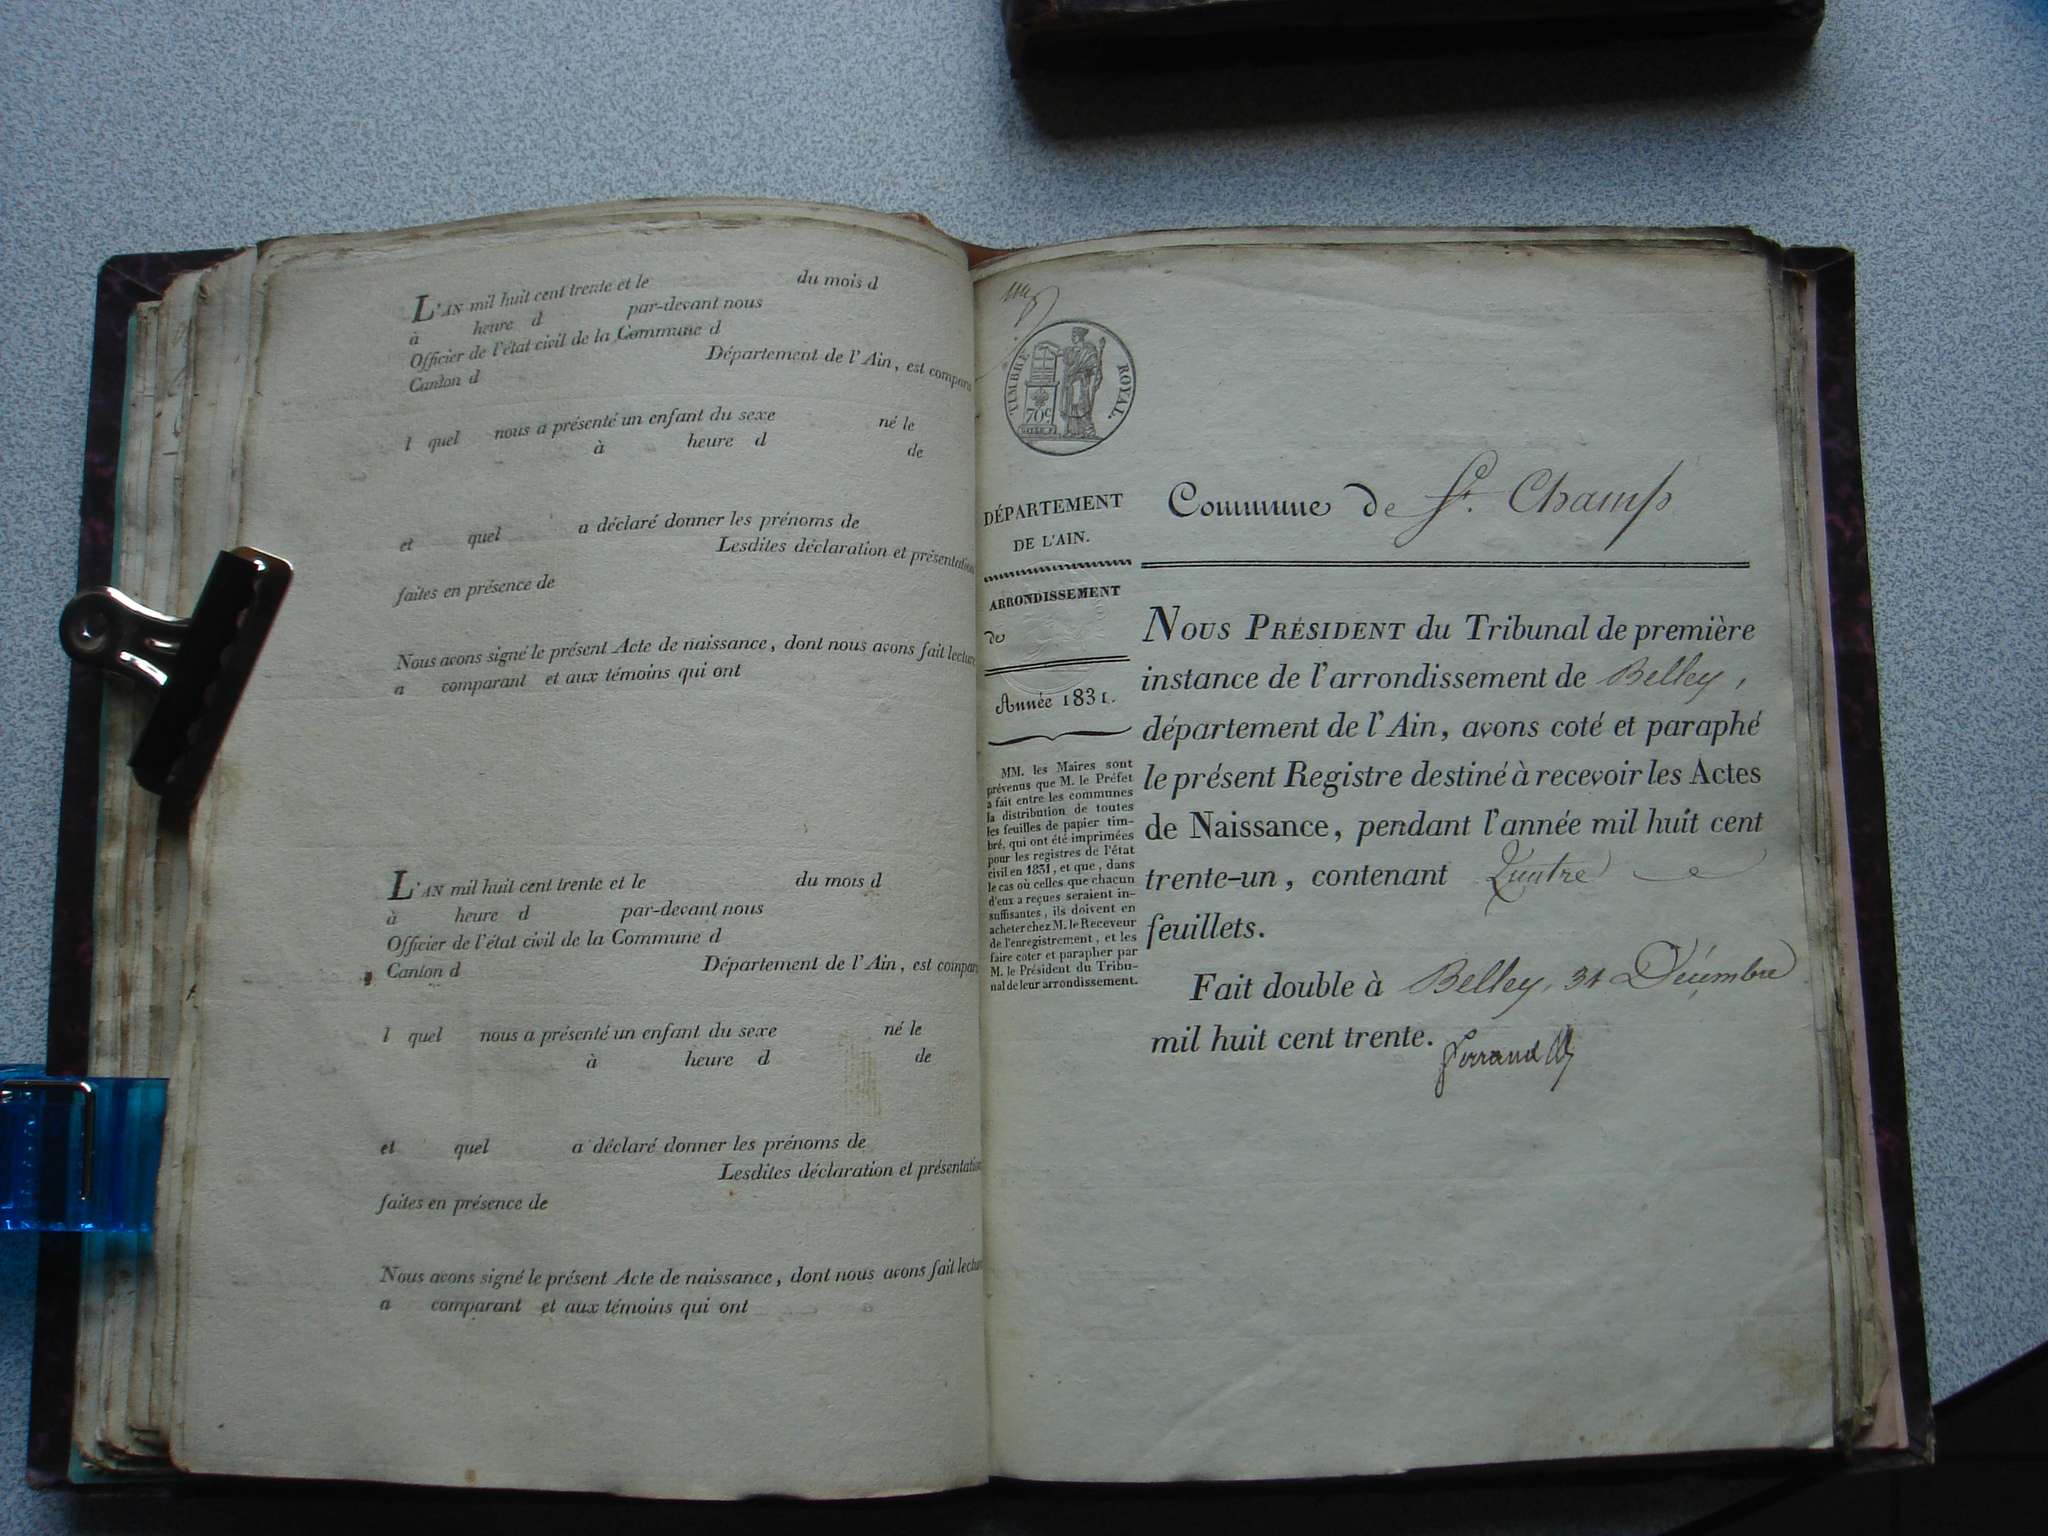 L'AN mil huit cent trente et le du mois d
à heure d par-devant nous
Officier de l'état civil de la Commune d
Canton d Département de l'Ain, est comparu
l quel nous a présenté un enfant du sexe né le
à heure d de
et quel a déclaré donner les prénoms de
Lesdites déclaration et présentation
faites en présence de
Nous avons signé le présent Acte de naissance, dont nous avons fait lecture
a comparant et aux témoins qui ont
L'AN mil huit cent trente et le du mois d
à heure d par-devant nous
Officier de l'état civil de la Commune d
Canton d Département de l'Ain, est compar
l quel nous a présenté un enfant du sexe né le
à heure d de
et quel a déclaré donner les prénoms de
Lesdites déclaration et présentation
faites en présence de
Nous avons signé le présent Acte de naissance, dont nous avons fait lecture
a comparant et aux témoins qui ont
TIMBRE ROYAL.
70c
DÉPARTEMENT
DE L'AIN.
ARRONDISSEMENT
de
Année 1831.
MM. les Maires sont
prévenus que M. le Préfet
a fait entre les communes
la distribution de toutes
les feuilles de papier tim-
bré, qui ont été imprimées
pour les registres de l'état
civil en 1831, et que, dans
le cas où celles que chacun
d'eux a reçues seraient in-
suffisantes, ils doivent en
acheter chez M. le Receveur
de l'enregistrement, et les
faire coter et parapher par
M. le Président du Tribu-
nal de leur arrondissement.
Commune de St. Champ
NOUS PRÉSIDENT du Tribunal de première
instance de l'arrondissement de Belley,
département de l'Ain, avons coté et paraphé
le présent Registre destiné à recevoir les Actes
de Naissance, pendant l'année mil huit cent
trente-un, contenant Quatre
feuillets.
Fait double à Belley, 31 Décembre
mil huit cent trente.